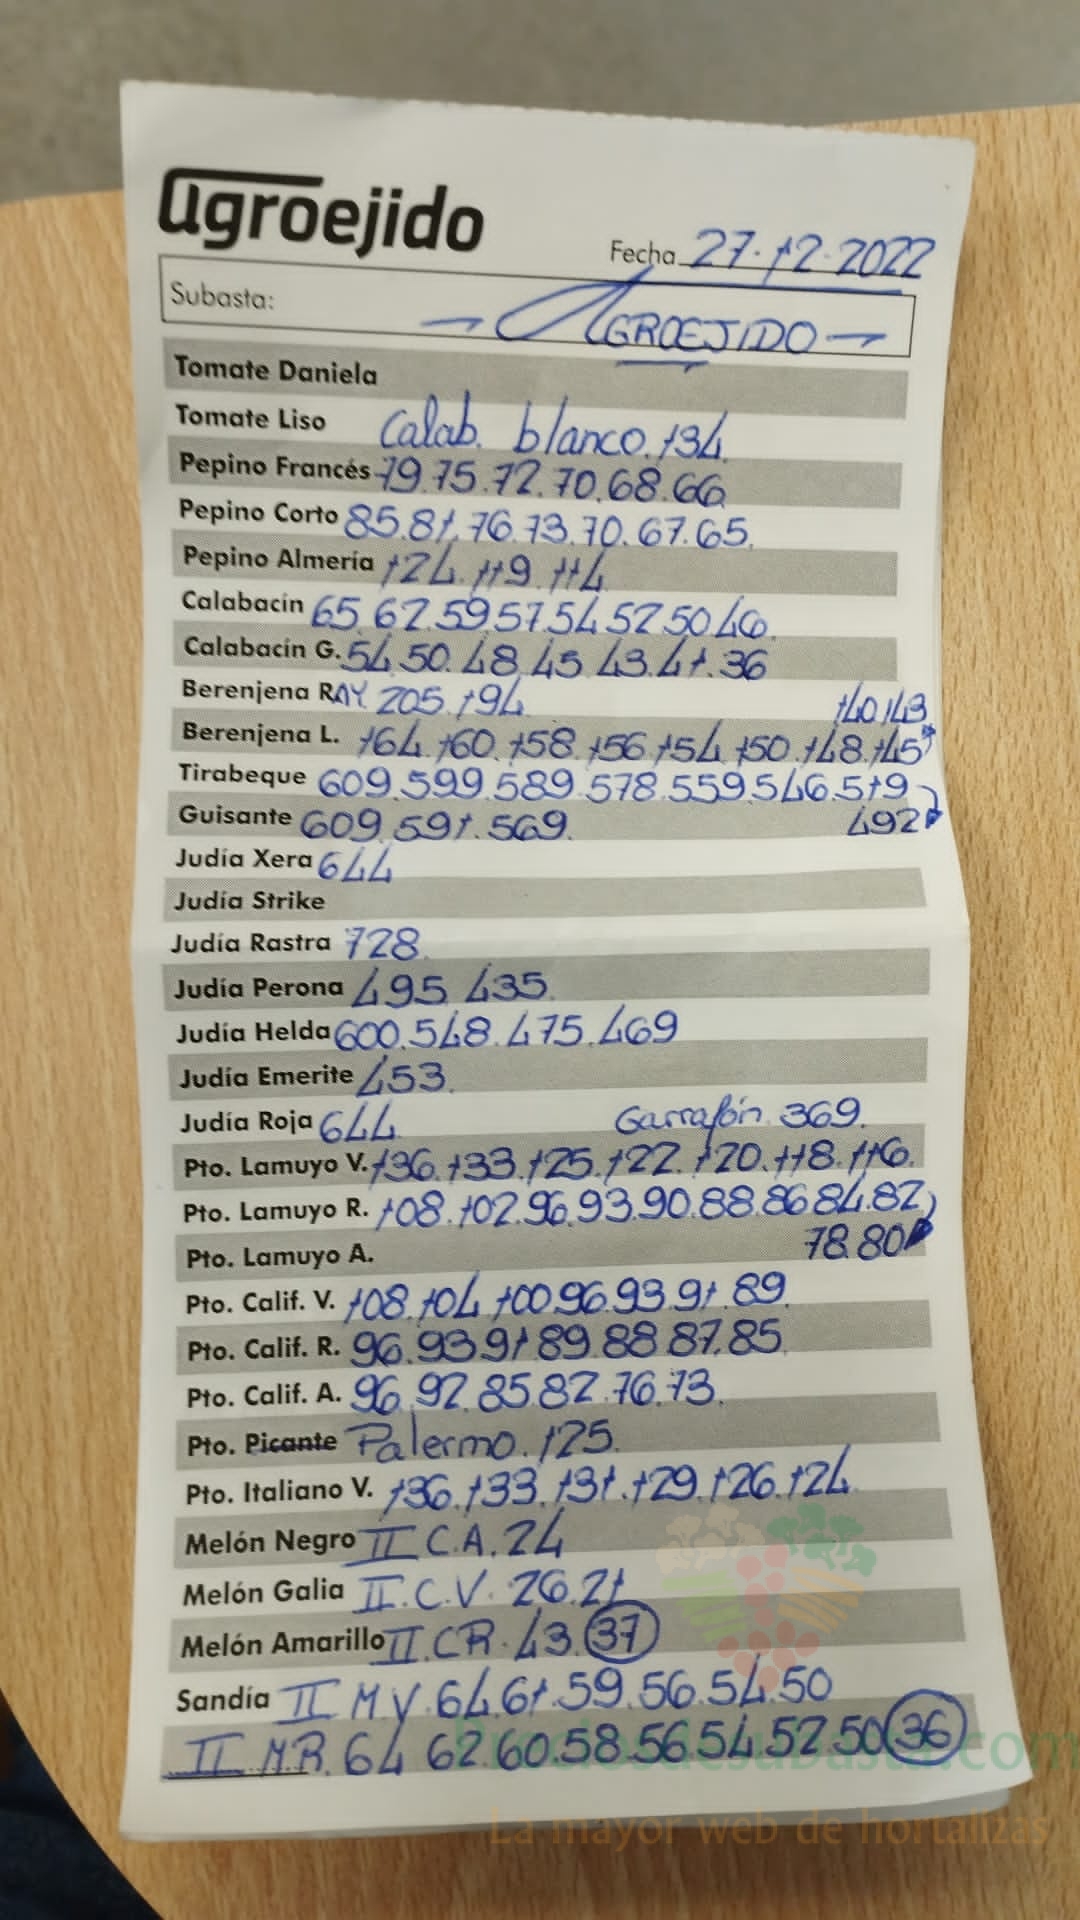 agroejido
Fecha 27.12.2022
Subasta: — AGROEJIDO —
Tomate Daniela
Tomate Liso Calab. blanco. 134.
Pepino Francés 79.75.72.70.68.66
Pepino Corto 85.81.76.73.70.67.65.
Pepino Almería 124.119.114
Calabacín 65.62.59.57.54.52.50.46.
Calabacín G. 54.50.48.45.43.41.36
Berenjena RAY. 205.194. 140.143
Berenjena L. 164.160.158.156.154.150.148.145
Tirabeque 609.599.589.578.559.546.519
Guisante 609.591.569. 492
Judía Xera 644
Judía Strike
Judía Rastra 728.
Judía Perona 495.435.
Judía Helda 600.548.475.469
Judía Emerite 453.
Judía Roja 644. Garrafón 369.
Pto. Lamuyo V. 136.133.125.122.120.118.116.
Pto. Lamuyo R. 108.102.96.93.90.88.86.84.82
Pto. Lamuyo A. 78.80
Pto. Calif. V. 108.104.100.96.93.91.89.
Pto. Calif. R. 96.93.91.89.88.87.85.
Pto. Calif. A. 96.92.85.82.76.73.
Pto. Picante Palermo. 125.
Pto. Italiano V. 136.133.131.129.126.124
Melón Negro II C.A. 24
Melón Galia II.C.V. 26.21
Melón Amarillo II.CR. 43.37
Sandía II M.V. 64.61.59.56.54.50
II M.R. 64 62.60.58.56.54.52.50 36
PreciosdesuBasta.com
La mayor web de hortalizas